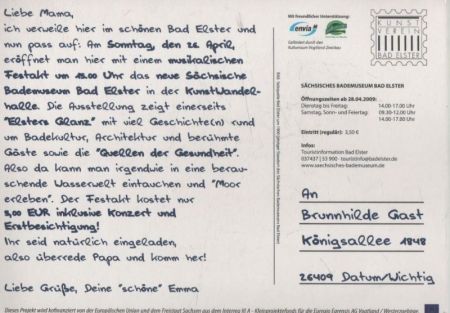 Liebe Mama,
ich verweile hier im schönen Bad Elster und
nun pass auf: Am Sonntag, dem 26. April,
eröffnet man hier mit einem musikalischen
Festakt um 15.00 Uhr das neue Sächsische
Bademuseum Bad Elster in der KunstWandel-
halle. Die Ausstellung zeigt einerseits
"Elsters Glanz" mit viel Geschichte(n) rund
um Badekultur, Architektur und berühmte
Gäste sowie die "Quellen der Gesundheit".
Also da kann man irgendwie in eine berau-
schende Wasserwelt eintauchen und "Moor
erleben". Der Festakt kostet nur
5,00 EUR inklusive Konzert und
Erstbesichtigung!
Ihr seid natürlich eingeladen,
also überrede Papa und komm her!
Liebe Grüße, Deine "schöne" Emma
Mit freundlicher Unterstützung:
envia M
Gefördert durch den
Kulturraum Vogtland Zwickau
KUNST
VEREIN
BAD ELSTER
SÄCHSISCHES BADEMUSEUM BAD ELSTER
Öffnungszeiten ab 28.04.2009:
Dienstag bis Freitag: 14.00-17.00 Uhr
Samstag, Sonn- und Feiertag: 09.30-12.00 Uhr
14.00-17.00 Uhr
Eintritt (regulär): 3,50 €
Infos:
Touristinformation Bad Elster
037437 | 53 900 · touristinfo@badelster.de
www.saechsisches-bademuseum.de
An
Brunnhilde Gast
Königsallee 1848
26409 Datum/Wichtig
Dieses Projekt wird kofinanziert von der Europäischen Union und dem Freistaat Sachsen aus dem Interreg III A - Kleinprojektefonds für die Euregio Egrensis AG Vogtland / Westerzgebirge